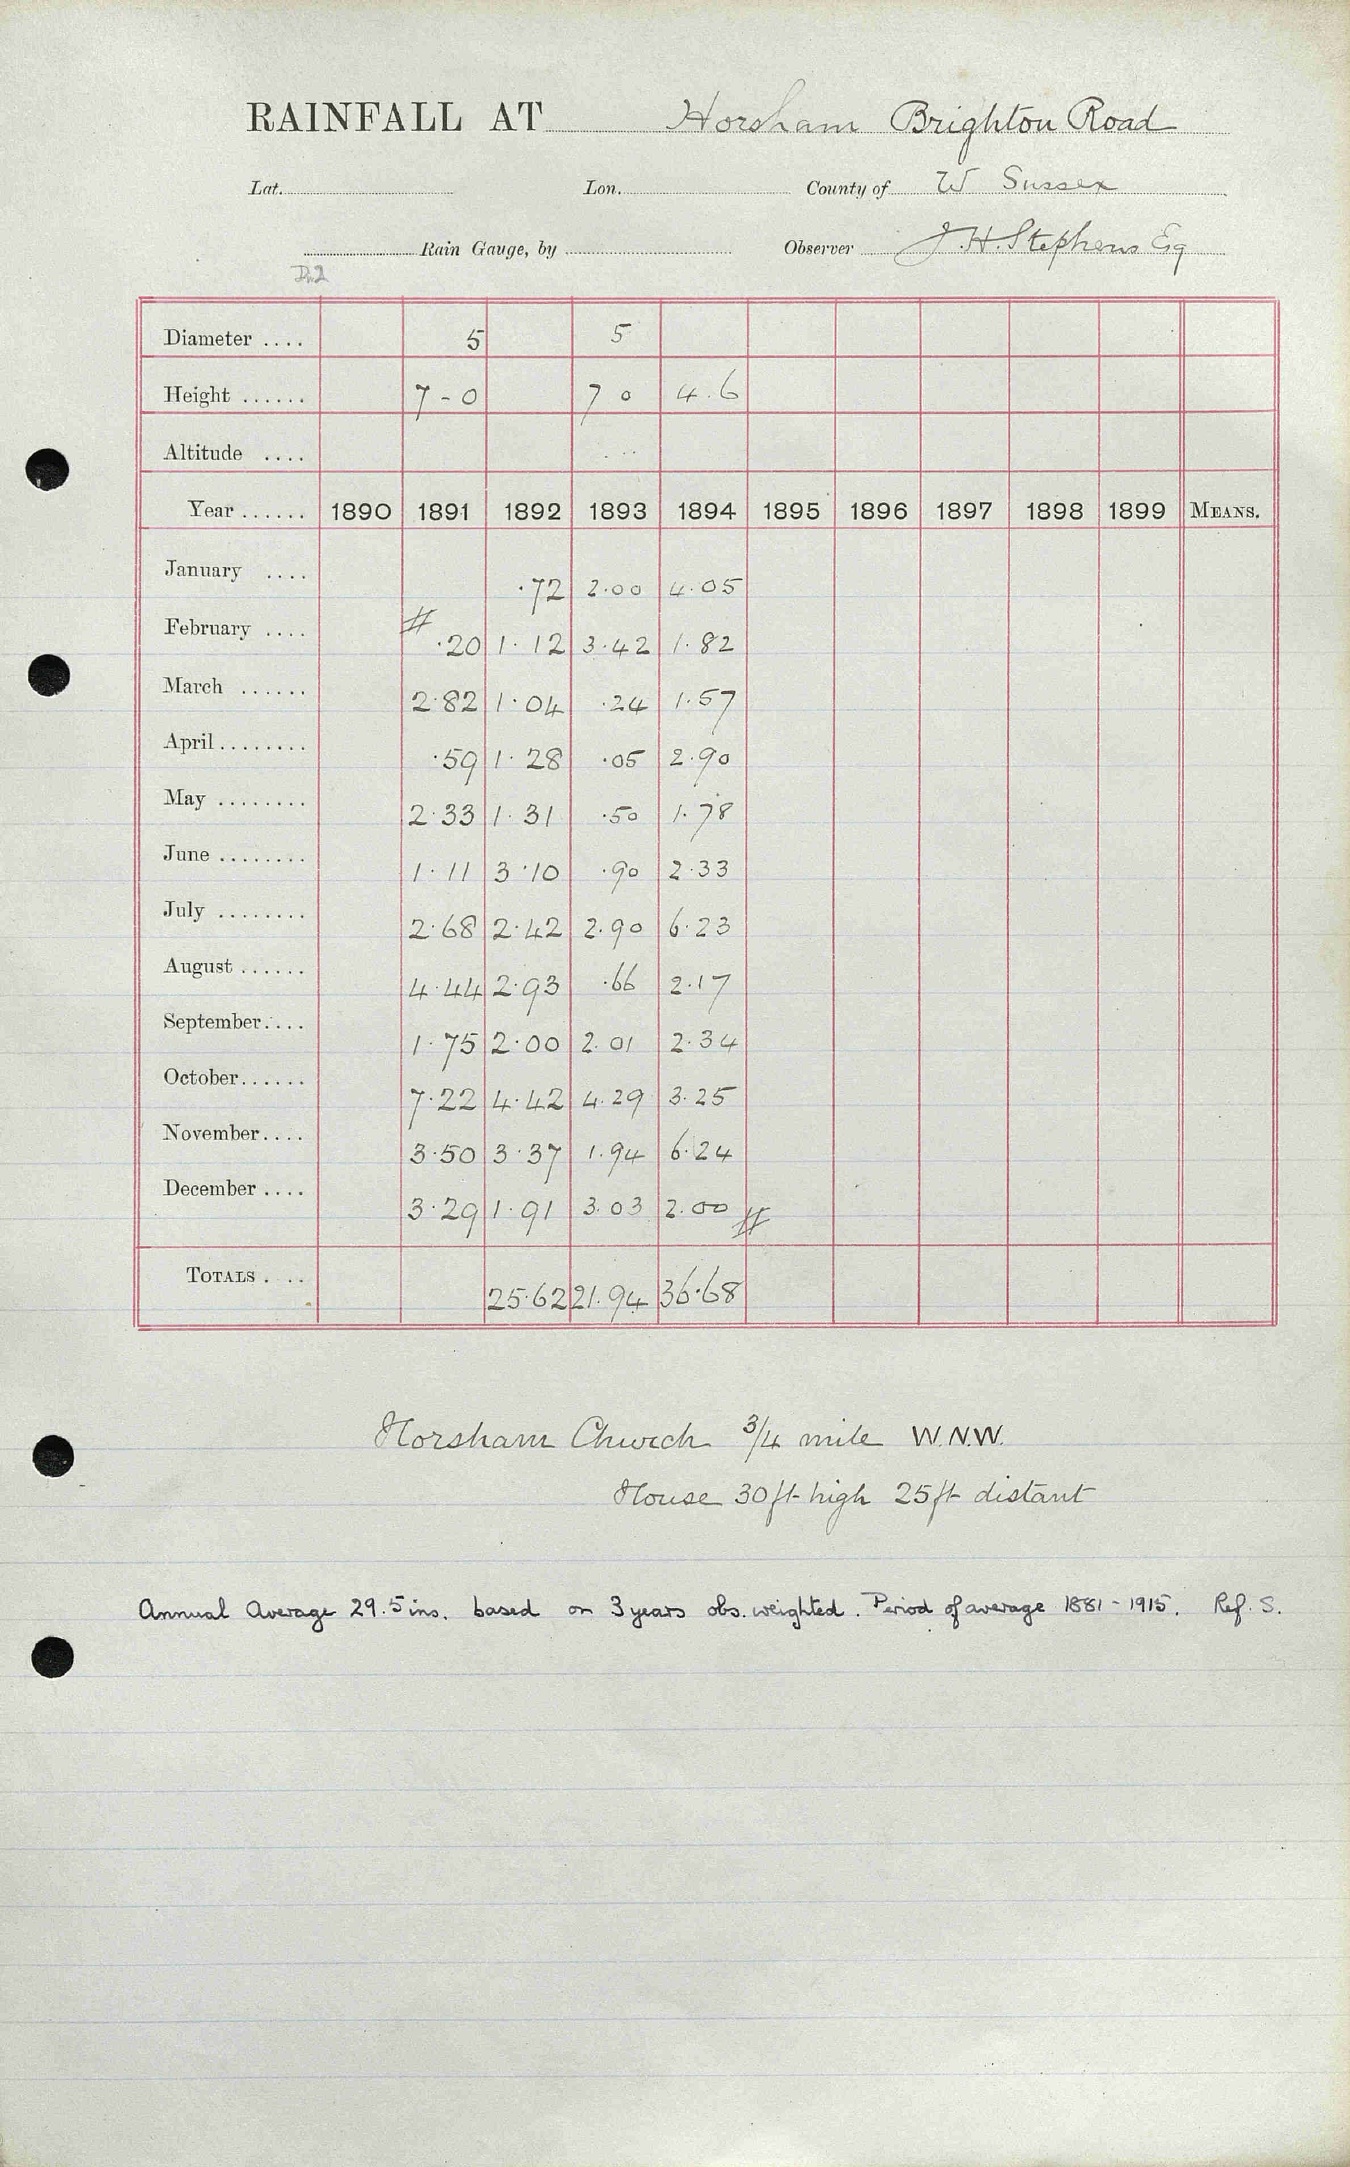 RAINFALL AT Horsham Brighton Road
Lat. Lon. County of W Sussex
Rain Gauge, by Observer J.H. Stephens Esq
Diameter .... 5 5
Height ...... 7-0 7 0 4.6
Altitude ....
Year ...... 1890 1891 1892 1893 1894 1895 1896 1897 1898 1899 MEANS.
January .... .72 2.00 4.05
February .... # .20 1.12 3.42 1.82
March ...... 2.82 1.04 .24 1.57
April ........ .59 1.28 .05 2.90
May ........ 2.33 1.31 .50 1.78
June ........ 1.11 3.10 .90 2.33
July ........ 2.68 2.42 2.90 6.23
August ...... 4.44 2.93 .66 2.17
September.... 1.75 2.00 2.01 2.34
October...... 7.22 4.42 4.29 3.25
November.... 3.50 3.37 1.94 6.24
December .... 3.29 1.91 3.03 2.00 #
TOTALS . .. 25.62 21.94 36.68
Horsham Church 3/4 mile W.N.W.
House 30ft high 25ft distant
Annual Average 29.5 ins. based on 3 years obs. weighted. Period of average 1881-1915. Ref. S.